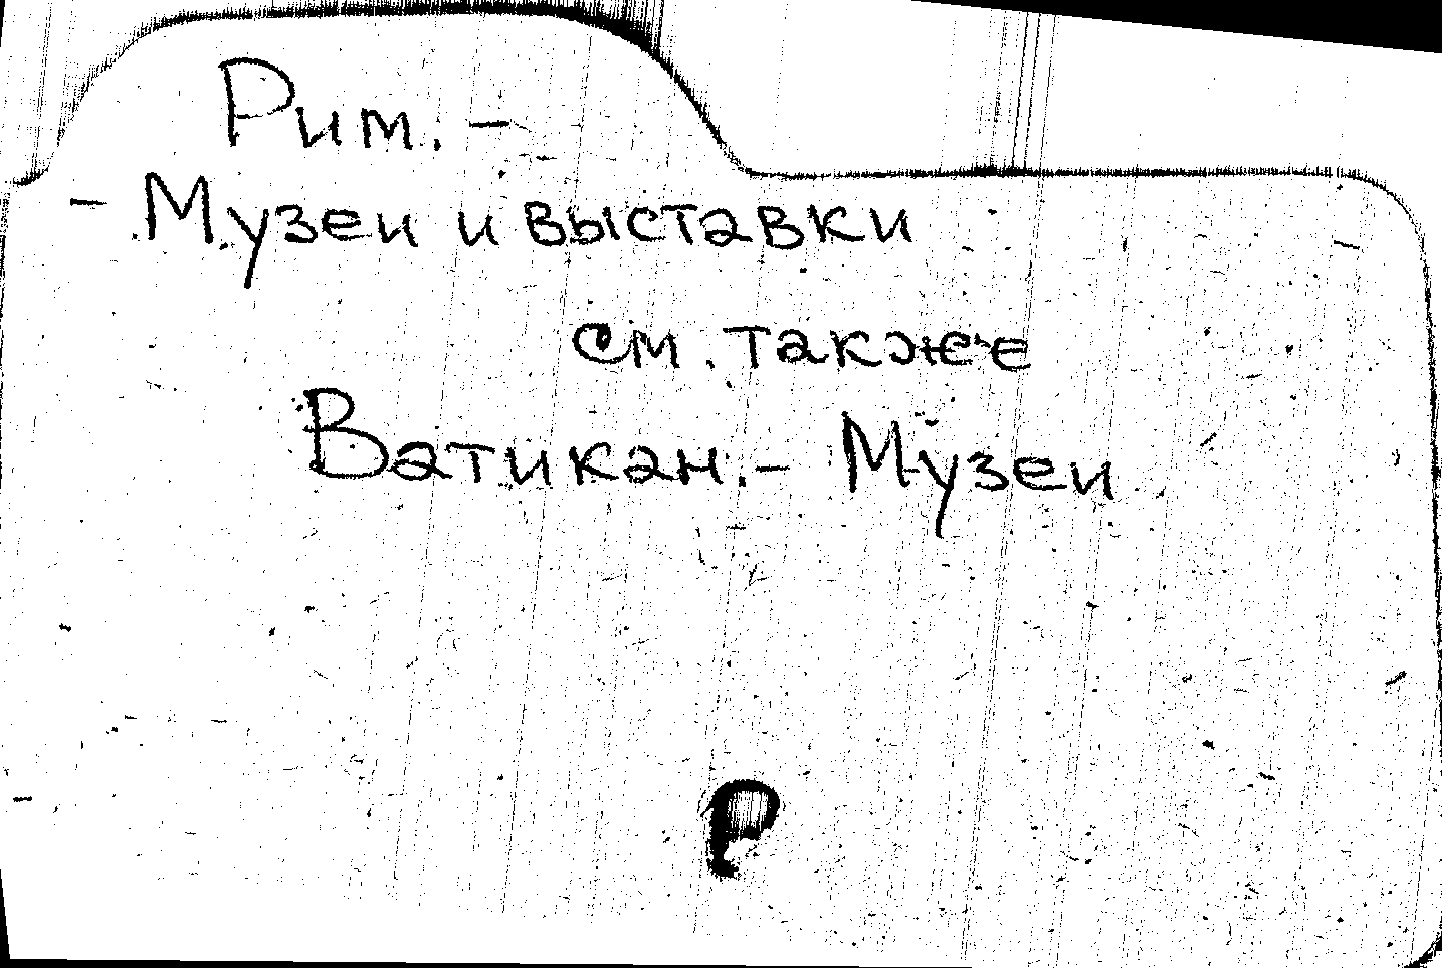 Рим. -
- Музеи и выставки
см. также
Ватикан. - Музеи